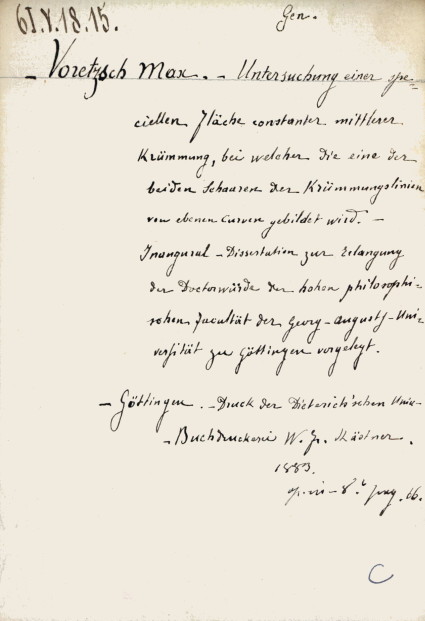 61.V.18.15.
Gen.
- Voretzsch Max. - Untersuchung einer spe-
ciellen Fläche constanter mittlerer
Krümmung, bei welcher die eine der
beiden Schaaren der Krümmungslinien
von ebenen Curven gebildet wird. -
Inaugural - Dissertation zur Erlangung
der Doctorwürde der hohen philosophi-
schen Facultät der Georg - Augusts - Uni-
versität zu Göttingen vorgelegt.
- Göttingen. - Druck der Dieterich'schen Univ-
- Buchdruckerei W. Fr. Kästner.
1883.
- 8.° pag. 16.
C